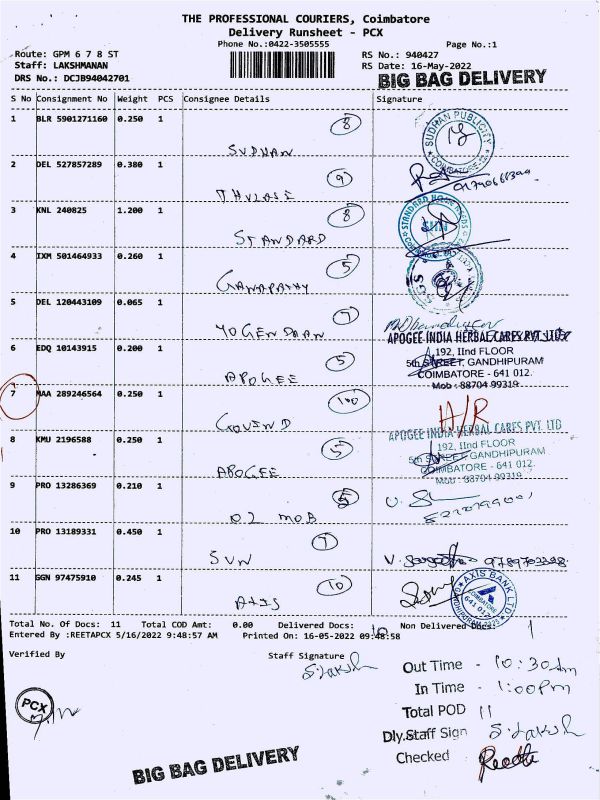 THE PROFESSIONAL COURIERS, Coimbatore
Delivery Runsheet - PCX
Phone No.:0422-3505555
Page No.:1
Route: GPM 6 7 8 ST
RS No.: 940427
Staff: LAKSHMANAN
RS Date: 16-May-2022
DRS No.: DCJB94042701
BIG BAG DELIVERY
S No Consignment No Weight PCS Consignee Details Signature
1 BLR 5901271160 0.250 1 8
SUDHAN
SUDHAN PUBLICITY
COIMBATORE-12
2 DEL 527857289 0.380 1 9
THULASI
3 KNL 240825 1.200 1 8
STANDARD
4 IXM 501464933 0.260 1 5
GANAPATHY
5 DEL 120443109 0.065 1 7
YOGENDRAN
6 EDQ 10143915 0.200 1 5
APOGEE
APOGEE INDIA HERBAL CARES PVT. LTD
192, IInd FLOOR
5th STREET, GANDHIPURAM
COIMBATORE - 641 012.
Mob : 88704 99319
7 MAA 289246564 0.250 1 100
GOVIND
H/R
8 KMU 2196588 0.250 1 5
APOGEE
APOGEE INDIA HERBAL CARES PVT. LTD
192, IInd FLOOR
5th STREET, GANDHIPURAM
COIMBATORE - 641 012.
Mob : 88704 99319
9 PRO 13286369 0.210 1 5
O2 MOB
10 PRO 13189331 0.450 1 7
SUN
11 GGN 97475910 0.245 1 10
AXIS
AXIS BANK LTD
COIMBATORE
641 012
Total No. Of Docs: 11 Total COD Amt: 0.00 Delivered Docs: 10 Non Delivered Docs: 1
Entered By :REETAPCX 5/16/2022 9:48:57 AM Printed On: 16-05-2022 09:48:58
Verified By Staff Signature
S. Laksh
Out Time - 10:30Am
In Time - 1:00pm
Total POD 11
Dly.Staff Sign S. Laksh
Checked Reetha
PCX
BIG BAG DELIVERY